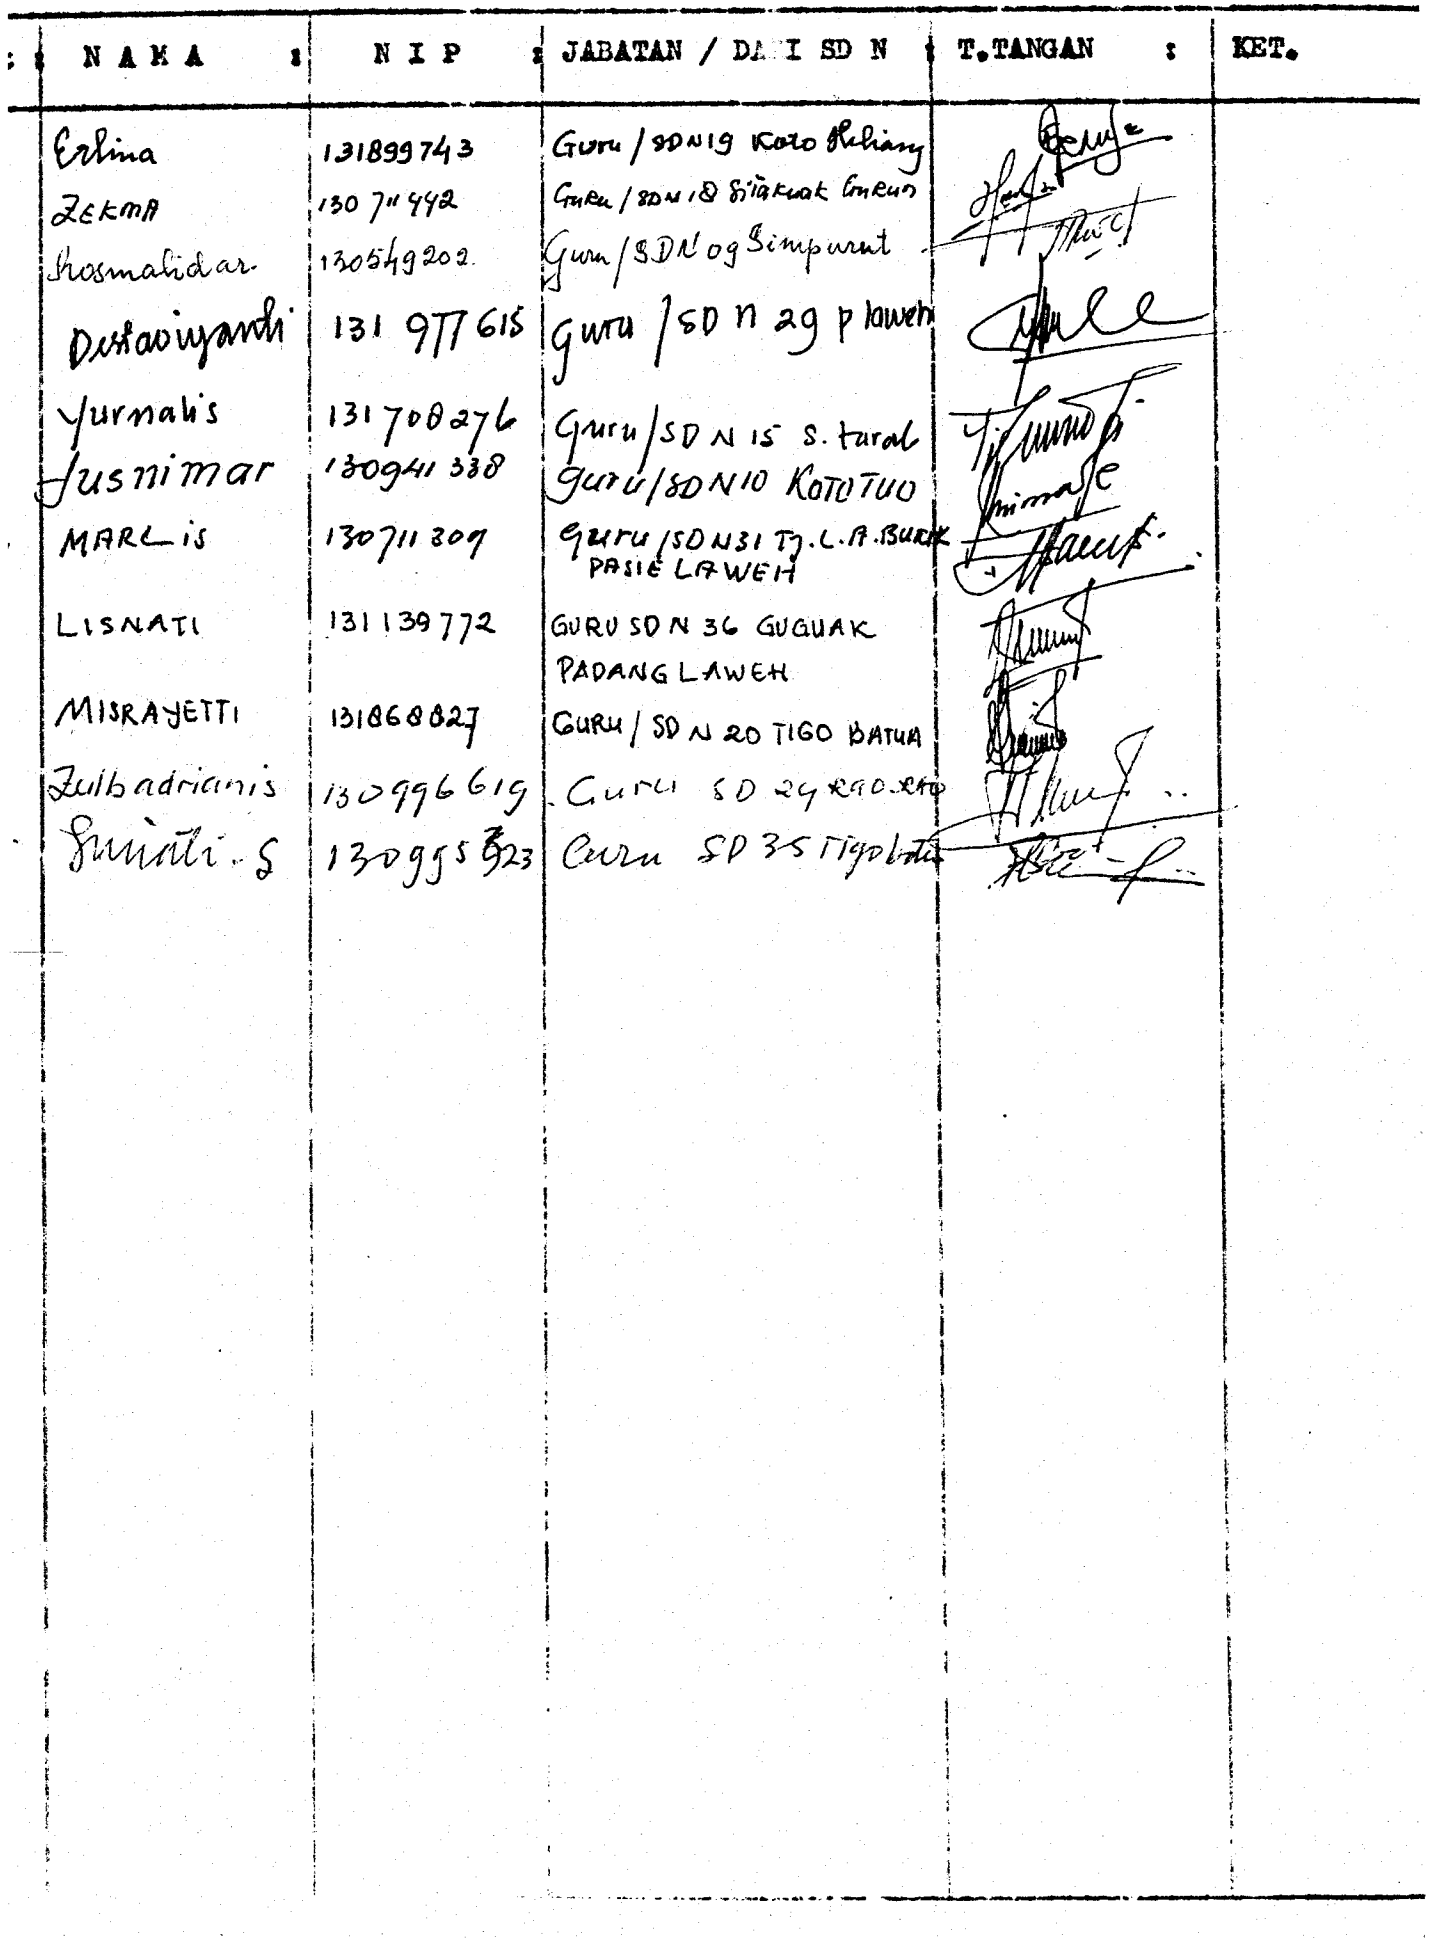 : : N A M A : N I P : JABATAN / DARI SD N : T.TANGAN : KET.
Erlina 131899743 Guru / SDN 19 Koto Hiliang
ZEKMA 130711442 Guru / SDN 18 Sitakuak
Rosmalidar. 130549202. Guru / SDN 09 Simpurut
Destaviyanti 131 977 615 Guru / SD N 29 p laweh
Yurnalis 131708276 Guru / SD N 15 S. tarab
Jusnimar 130941338 guru / SDN 10 KOTOTUO
MARLis 130711309 guru / SDN31 Tj. L. A. BURIK
PASIE LAWEH
LISNATI 131139772 GURU SDN 36 GUGUAK
PADANG LAWEH
MISRAYETTI 131868827 GURU / SD N 20 TIGO BATUA
Zulbadrianis 130996619 Guru SD 24 RAO.RAO
S 130995 Guru SD 35 Tigo batu